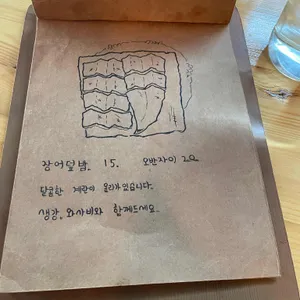 장어덮밥. 15. 오반자이 20
달콤한 계란이 올라가있습니다.
생강. 와사비와 함께드세요.